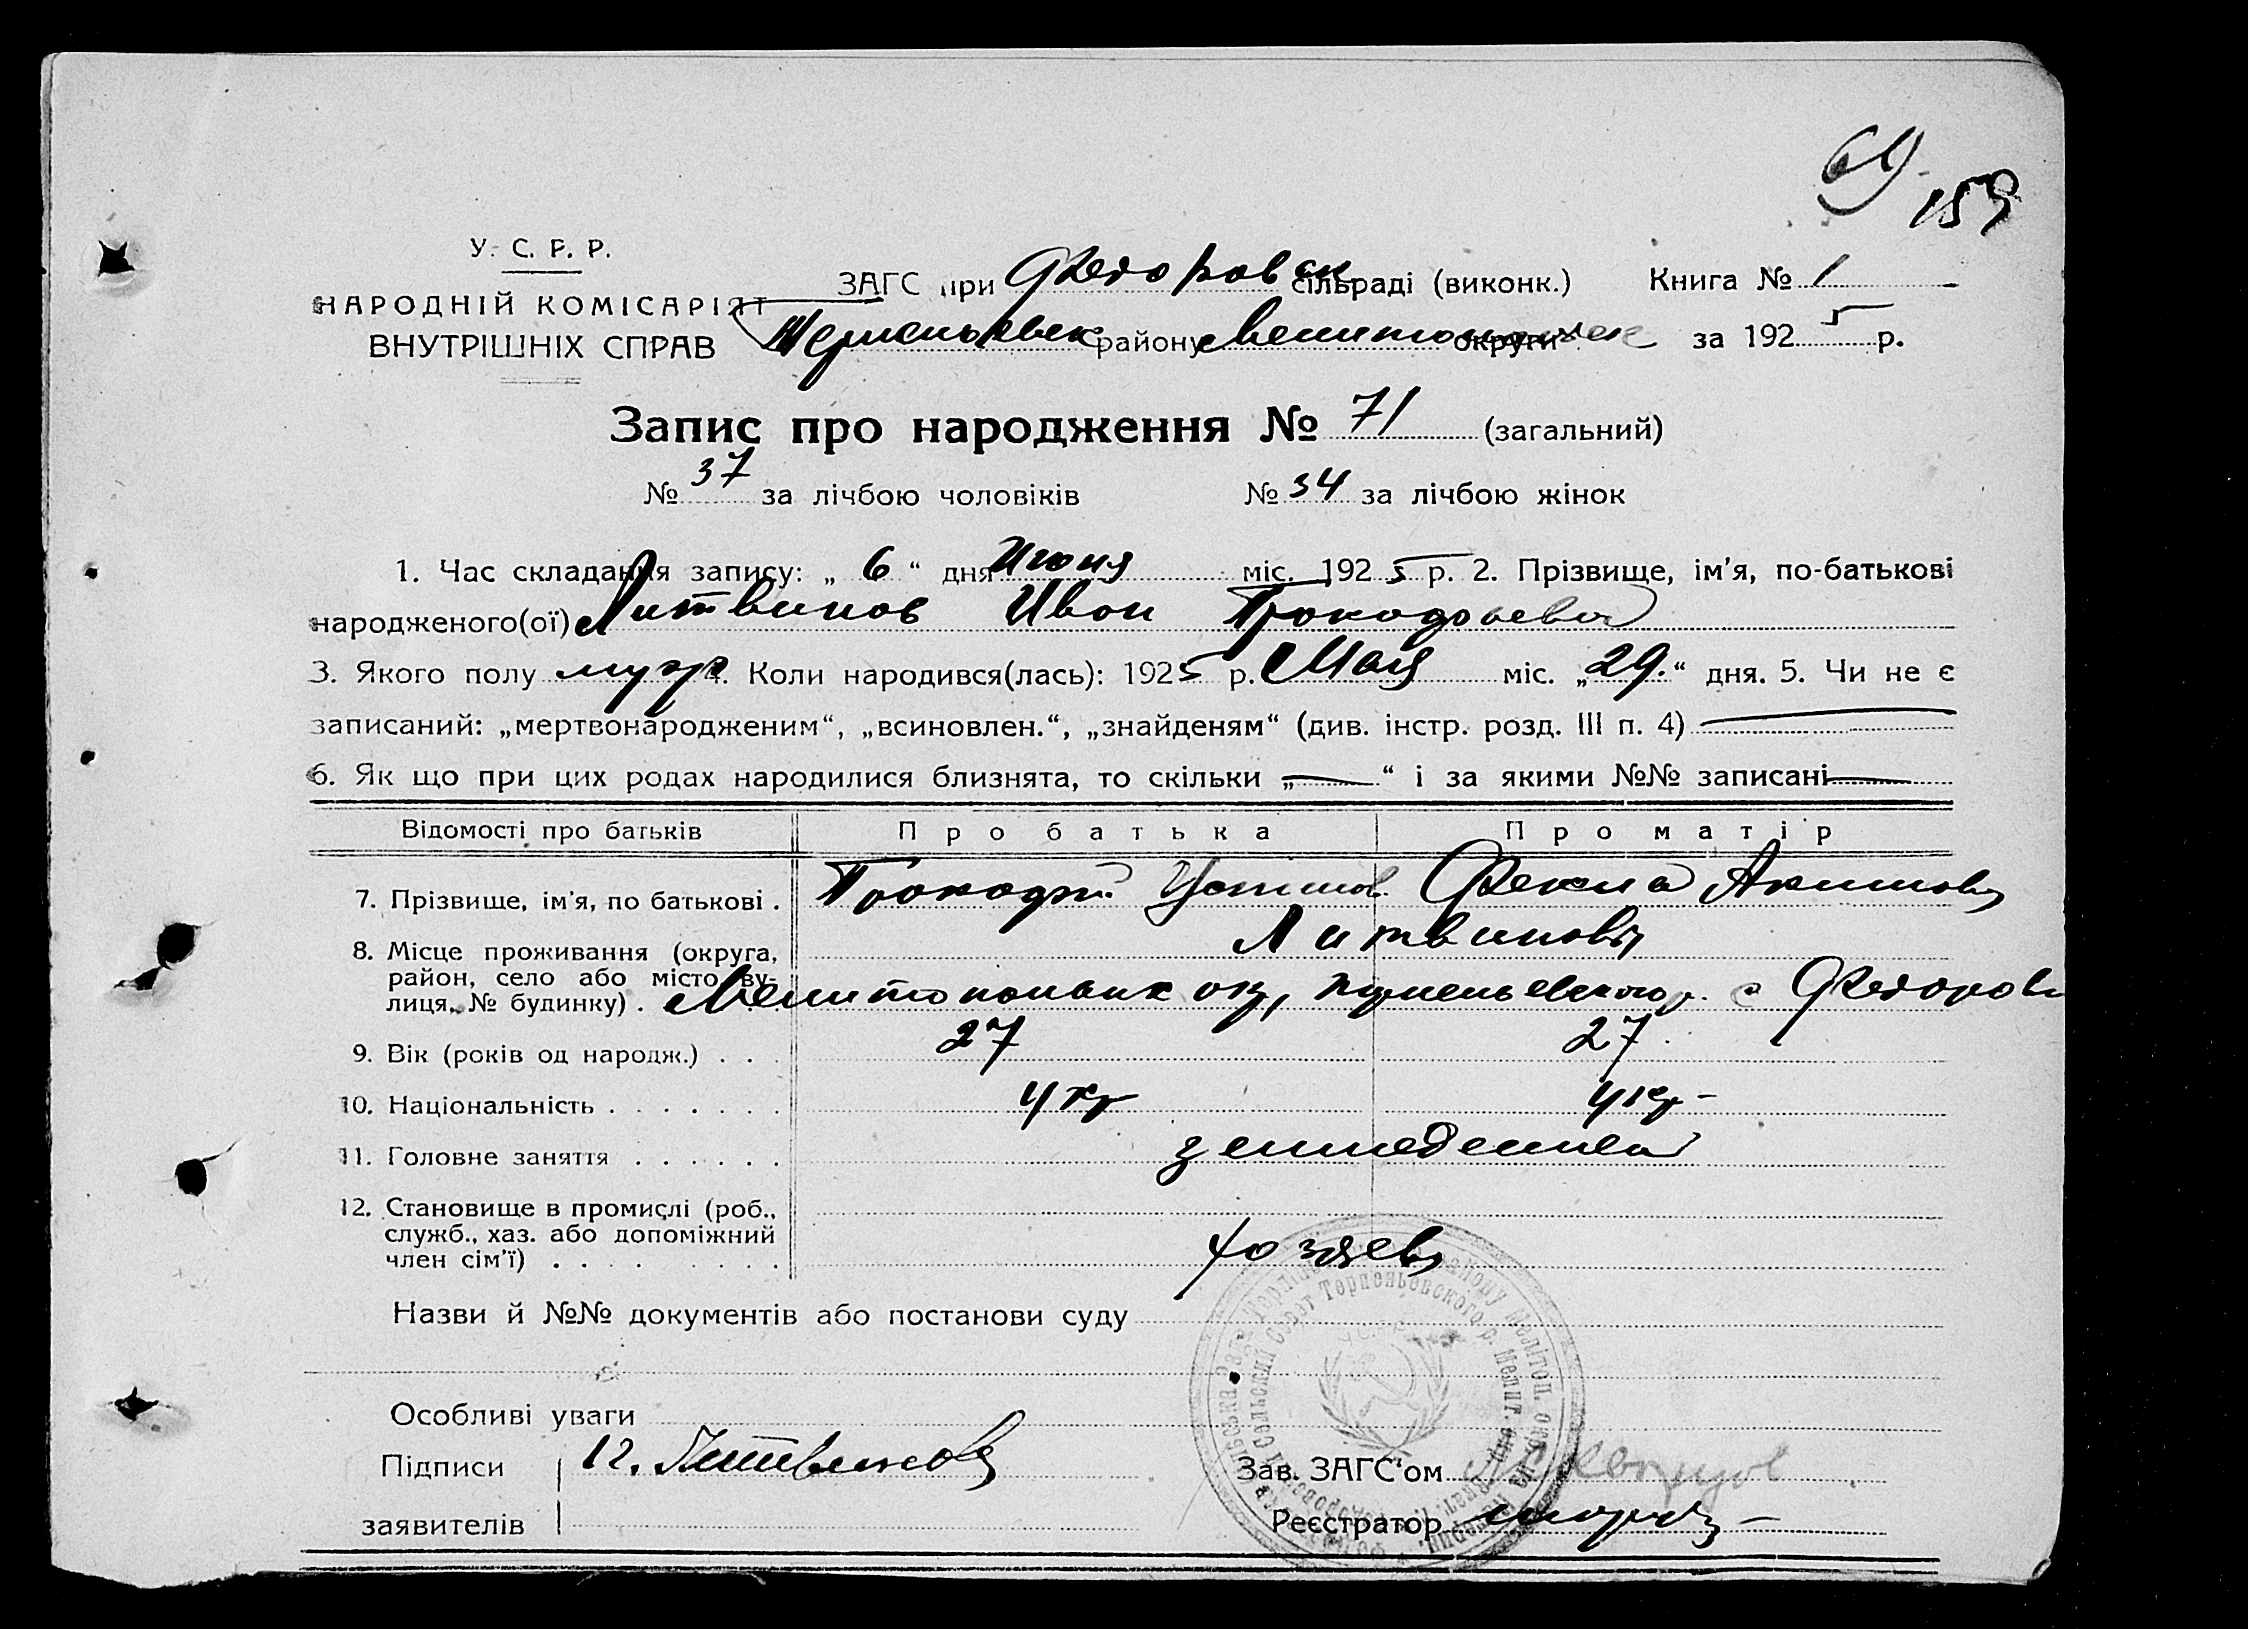 69
159
У. С. Р. Р.
НАРОДНІЙ КОМІСАРІЯТ
ВНУТРІШНІХ СПРАВ
ЗАГС при Федоровск сільраді (виконк.) Книга № 1
Терпеньевск району Мелитопольск округи за 1925 р.
Запис про народження № 71 (загальний)
№ 37 за лічбою чоловіків № 34 за лічбою жінок
1. Час складання запису: „ 6 “ дня Июня міс. 1925 р. 2. Прізвище, ім’я, по-батькові
народженого(ої) Литвинов Иван
3. Якого полу муж 4. Коли народився(лась): 1925 р. Мая міс. „29.“ дня. 5. Чи не є
записаний: „мертвонародженим“, „всиновлен.“, „знайденям“ (див. інстр. розд. III п. 4)
6. Як що при цих родах народилися близнята, то скільки „ “ і за якими №№ записані
Відомості про батьків Про батька Про матір
7. Прізвище, ім’я, по батькові . Фекла Акимов
Литвиновы
8. Місце проживання (округа,
район, село або місто, ву-
лиця, № будинку) . Мелитопольск окр, Терпеньевского р. с Федоровк
9. Вік (років од народж.) . . . 27 27
10. Національність . . . . . . . Укр Укр-
11. Головне заняття . . . . . . земледелие
12. Становище в промислі (роб.,
служб., хаз. або допоміжний
член сім’ї) . . . . . . . . хозяева
Назви й №№ документів або постанови суду
Особливі уваги
Підписи Литвинов
заявителів
Зав. ЗАГС‘ом
Реєстратор
Сельский Совет Терпеньевского р. Мелит. окр.